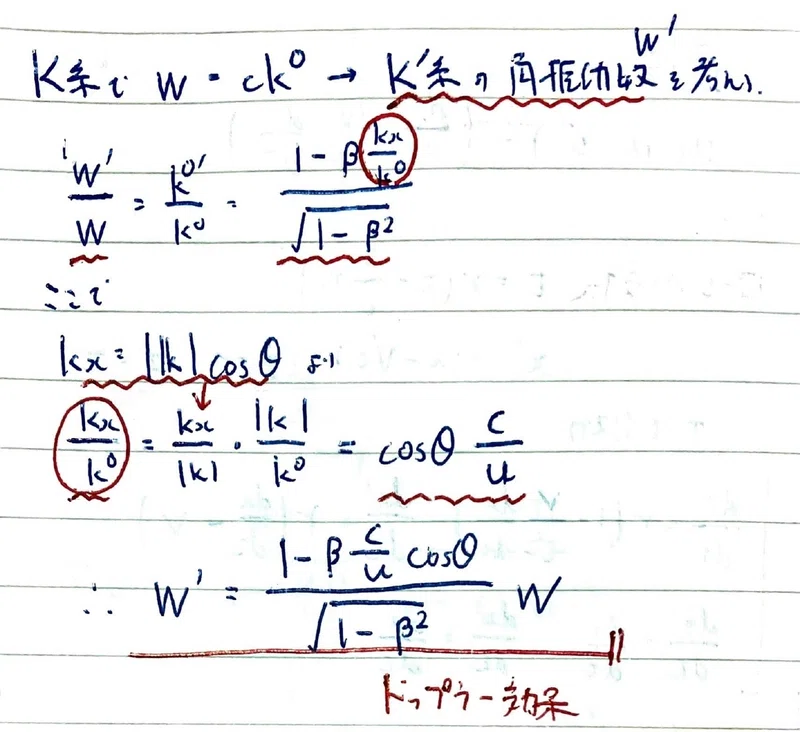 K系で W = ck⁰ → K'系の角振動数 W' を考える.
W'/W = k⁰'/k⁰ = (1 - β kx/k⁰)/√(1 - β²)
ここで
kx = |k| cosθ より
kx/k⁰ = kx/|k| · |k|/k⁰ = cosθ c/u
∴ W' = (1 - β c/u cosθ)/√(1 - β²) W
ドップラー効果